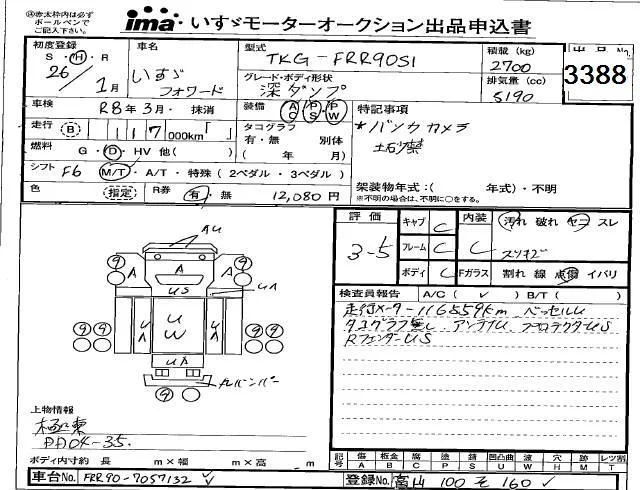 (注)赤太枠内は必ず
ボールペンで
ご記入下さい。
ima いすゞモーターオークション出品申込書
初度登録
S・H・R
26/1月
車名
いすゞ
フォワード
型式
TKG-FRR90S1
積載 (kg)
2700
グレード・ボディ形状
深ダンプ
排気量 (cc)
5190
3388
車検
R8年3月・抹消
装備 AC PS PW
特記事項
*バックカメラ
土砂禁
走行 B 117000km「 」
タコグラフ
有・無 別体
( 年 月)
燃料
G・D・HV 他( )
シフト F6 M/T・A/T・特殊 (2ペダル・3ペダル)
架装物年式:( 年式)・不明
※不明の場合は、不明に○をする。
色 (指定) R券 有・無 12,080円
評価
3-5
キャブ C
フレーム C
ボディ C
内装 C
Fガラス
汚れ 破れ ヤニ スレ
割れ 線 点傷 イバリ
検査員報告 A/C( ✓ ) B/T( )
走行メーター116559km ベッセルU
タコグラフ無し アンテナU プロテクタUS
RフェンダーUS
AU
9 A A A 9
US UA
UA UW UA
9 9
UA
リヤバンパー
9
上物情報
極東
DD04-35.
ボディ内寸約 長 m×幅 m×高 m
記号 傷 板金 腐 塗 錆 凹凸曲 波 穴 跡 レツ割
A B C P S U W H M T
車台No. FRR90-7057132 ✓
登録No. 富山 100 そ 160 ✓